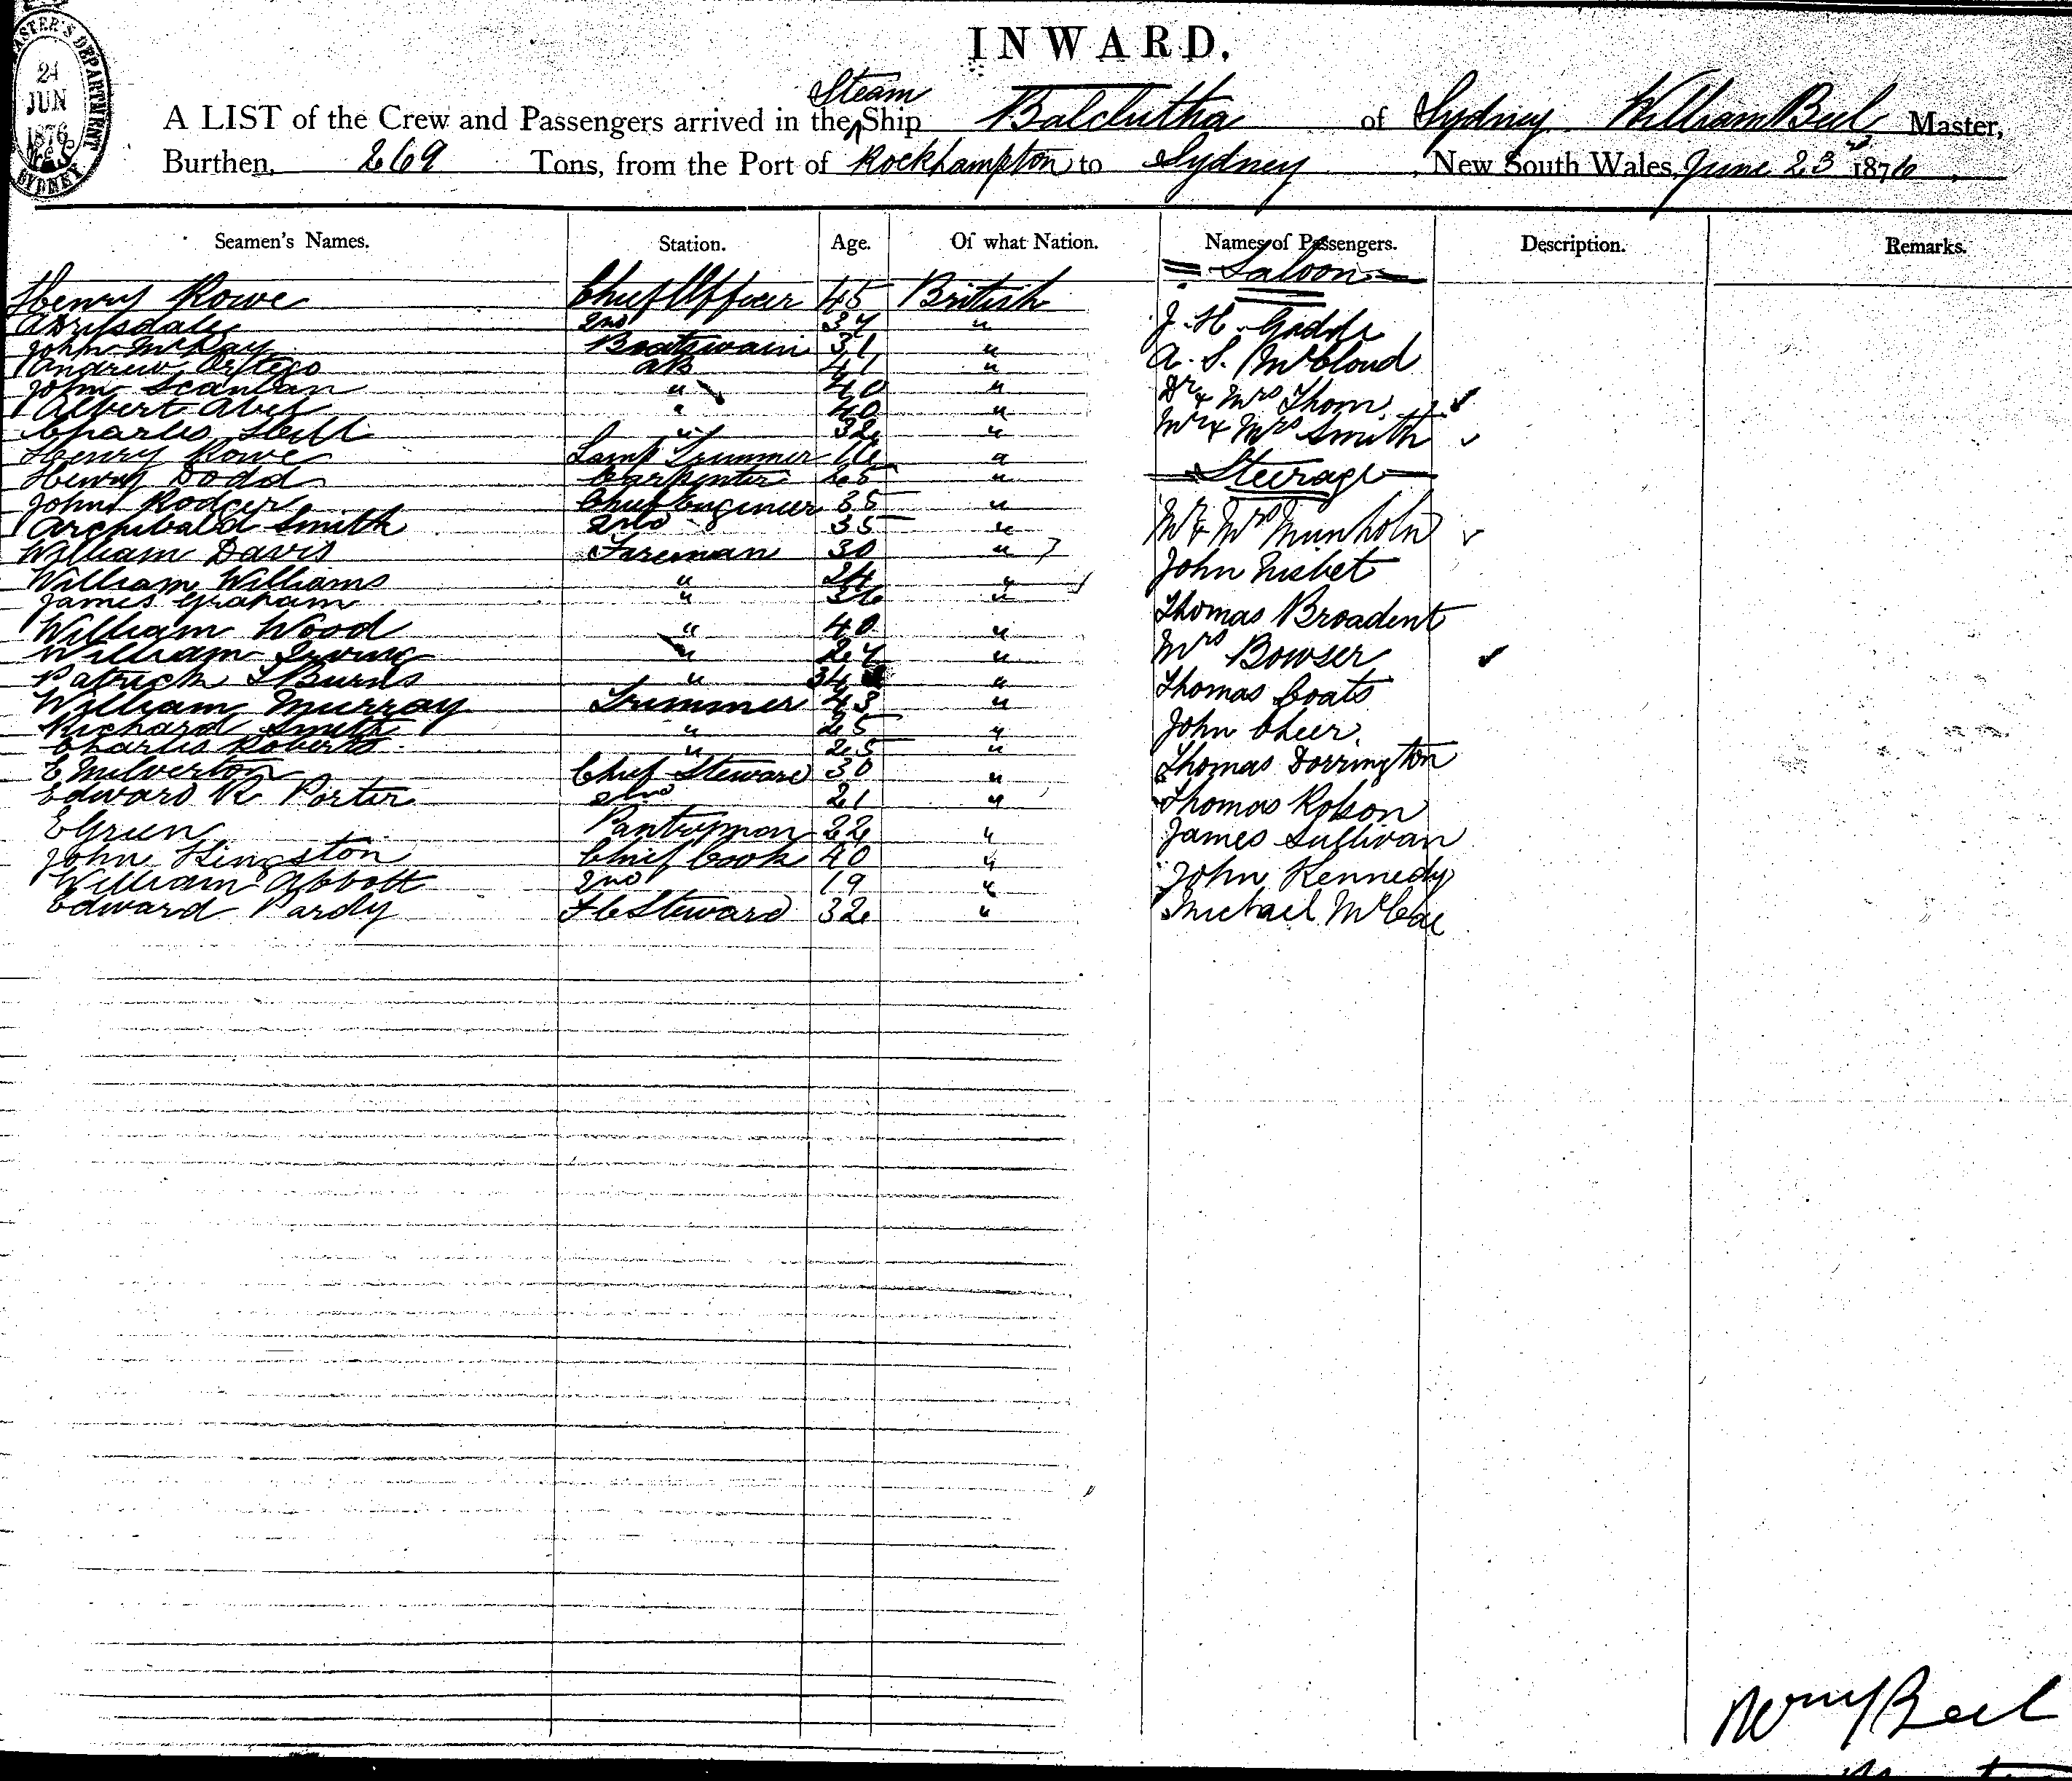 MASTER'S DEPARTMENT
24
JUN
1876
SYDNEY
INWARD.
Steam
A LIST of the Crew and Passengers arrived in the Ship Balclutha of Sydney William Beel Master,
Burthen, 269 Tons, from the Port of Rockhampton to Sydney, New South Wales, June 23rd 1876
Seamen's Names. Station. Age. Of what Nation. Names of Passengers. Description. Remarks.
Saloon
Henry Rowe Chief Officer 45 British
2nd 37 "
J. H. Geddes
John McKay Boatswain 31 "
A. S. McCloud
Andrew AB 41 "
John Scanlan " 40 "
Dr & Mrs Thom
Albert Abel " 40 "
Mr & Mrs Smith
Charles " 32 "
Henry Rowe Lamp Trimmer 16 "
Steerage
Henry Dodd Carpenter 25 "
John Rodger Chief Engineer 35 "
Archibald Smith 2nd " 35 "
Mr & Mrs
William Davis Fireman 30 "
John Nisbet
William Williams " 24 "
James Graham " 36 "
Thomas Broadent
William Wood " 40 "
William Irving " 27 "
Mrs Bowser
Patrick Burns " 34 "
Thomas Coats
William Murray Trimmer 43 "
Richard Smith " 25 "
John Cheer.
Charles Roberts " 25 "
E Milverton Chief Steward 30 "
Thomas Dorrington
Edward R Porter 2nd 21 "
Thomas Robson
E Green Pantryman 22 "
James Sullivan
John Kingston Chief Cook 40 "
John Kennedy
William Abbott 2nd 19 "
Edward Pardy F C Steward 32 "
Michael McCae
Wm Beel